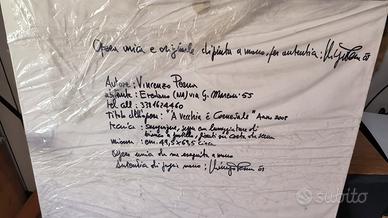 Opera unica e originale dipinta a mano, per autentica:
Autore: Vincenzo
abitante: Ercolano (NA) via G. Marconi 55
tel cell:
Titolo dell'opera: "A Vecchia 'e Carnevale" Anno 2005
tecnica: sanguigna, seppia con lumeggiature di
bianco a pastello, gessi su carta da scena
misure: cm. 49,5 x 69,5 circa
Opera unica da me eseguita a mano
Autentica di
subito